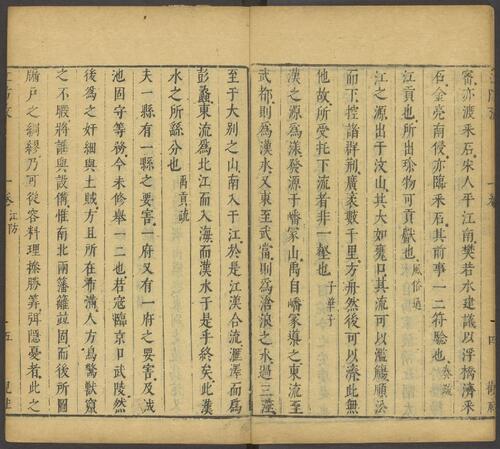 審亦渡采石宋人平江南樊若水建議以浮橋濟采
石金亮南侵亦臨采石其前事一二符驗也
江貢也所出珍物可貢獻也風俗通
江之源出于汶山其大如甕口其流可以濫觴順㳂
而下控諸群荊廣袤數千里方舟然後可以濟此無
他故所受托下流者非一壑也子華子
漢之源為漾發源于嶓冡山禹自嶓冡導之東流至
武都則為漢水又東至武當則為滄浪之水過三澨
至于大别之山南入于江於是江漢合流滙澤而為
彭蠡東流為北江而入海而漢水于是乎終矣此漢
水之所繇分也禹貢疏
夫一縣有一縣之要害一府又有一府之要害及戍
池固守等務今未修舉一二也若寇臨京口武陵然
後為之奸細與土賊方且所在布滿人方為驚獸竄
之不暇將誰與設俻惟南北兩籓籬竝固而後所圖
牖戶之綢繆乃可從容料理操勝筭弭隱憂者此之
卷
江防
十五
十四